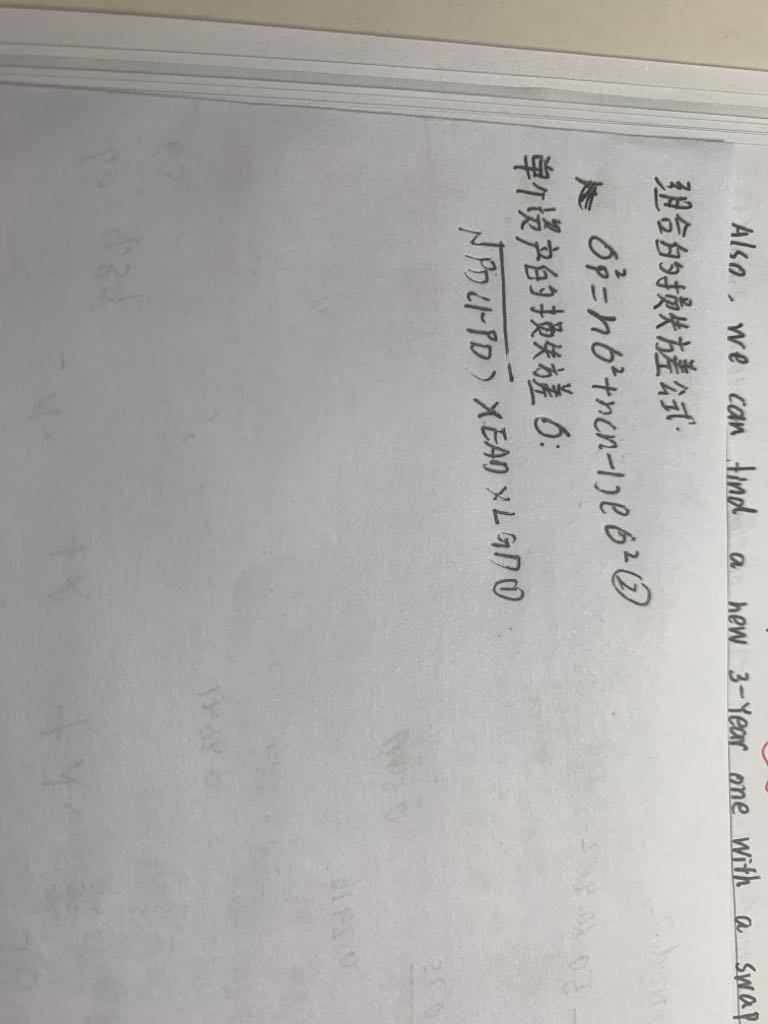 Also, we can find a new 3-Year one with a swap
组合的损失方差公式.
σp²=nσ²+n(n-1)ρσ² ②
单个资产的损失方差 σ:
√PD(1-PD) ×EAD×LGD ①